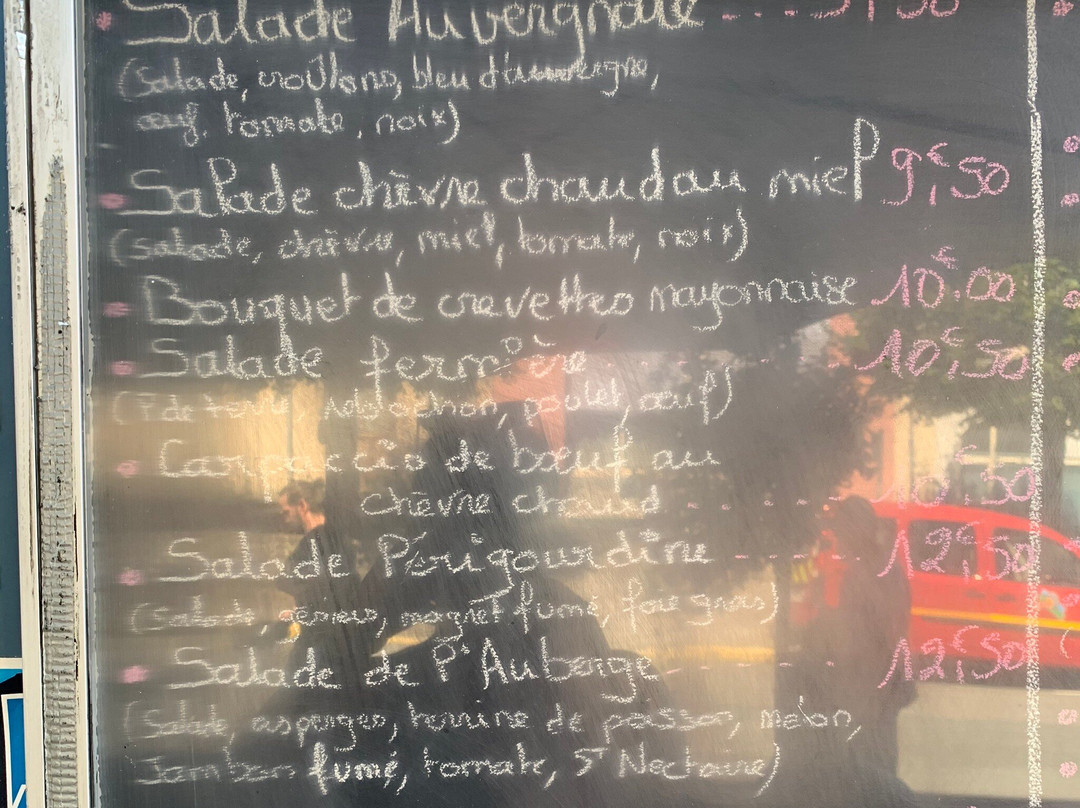 Salade Auvergnate - - - 9,50
(Salade, croûtons, bleu d'auvergne,
œuf, tomate, noix)
Salade chèvre chaud au miel 9,€50
(salade, chèvre, miel, tomate, noix)
Bouquet de crevettes mayonnaise 10,€00
Salade fermière - - - 10,€50
(P de terre, reblochon, poulet, œuf)
Carpaccio de bœuf au
chèvre chaud - - - - - 10,€50
Salade Périgourdine - - - - - 12,€50
(Salade, gésiers, magret fumé, foie gras)
Salade de l'Auberge - - - - - 12,€50
(Salade, asperges, terrine de poisson, melon,
Jambon fumé, tomate, St Nectaire)